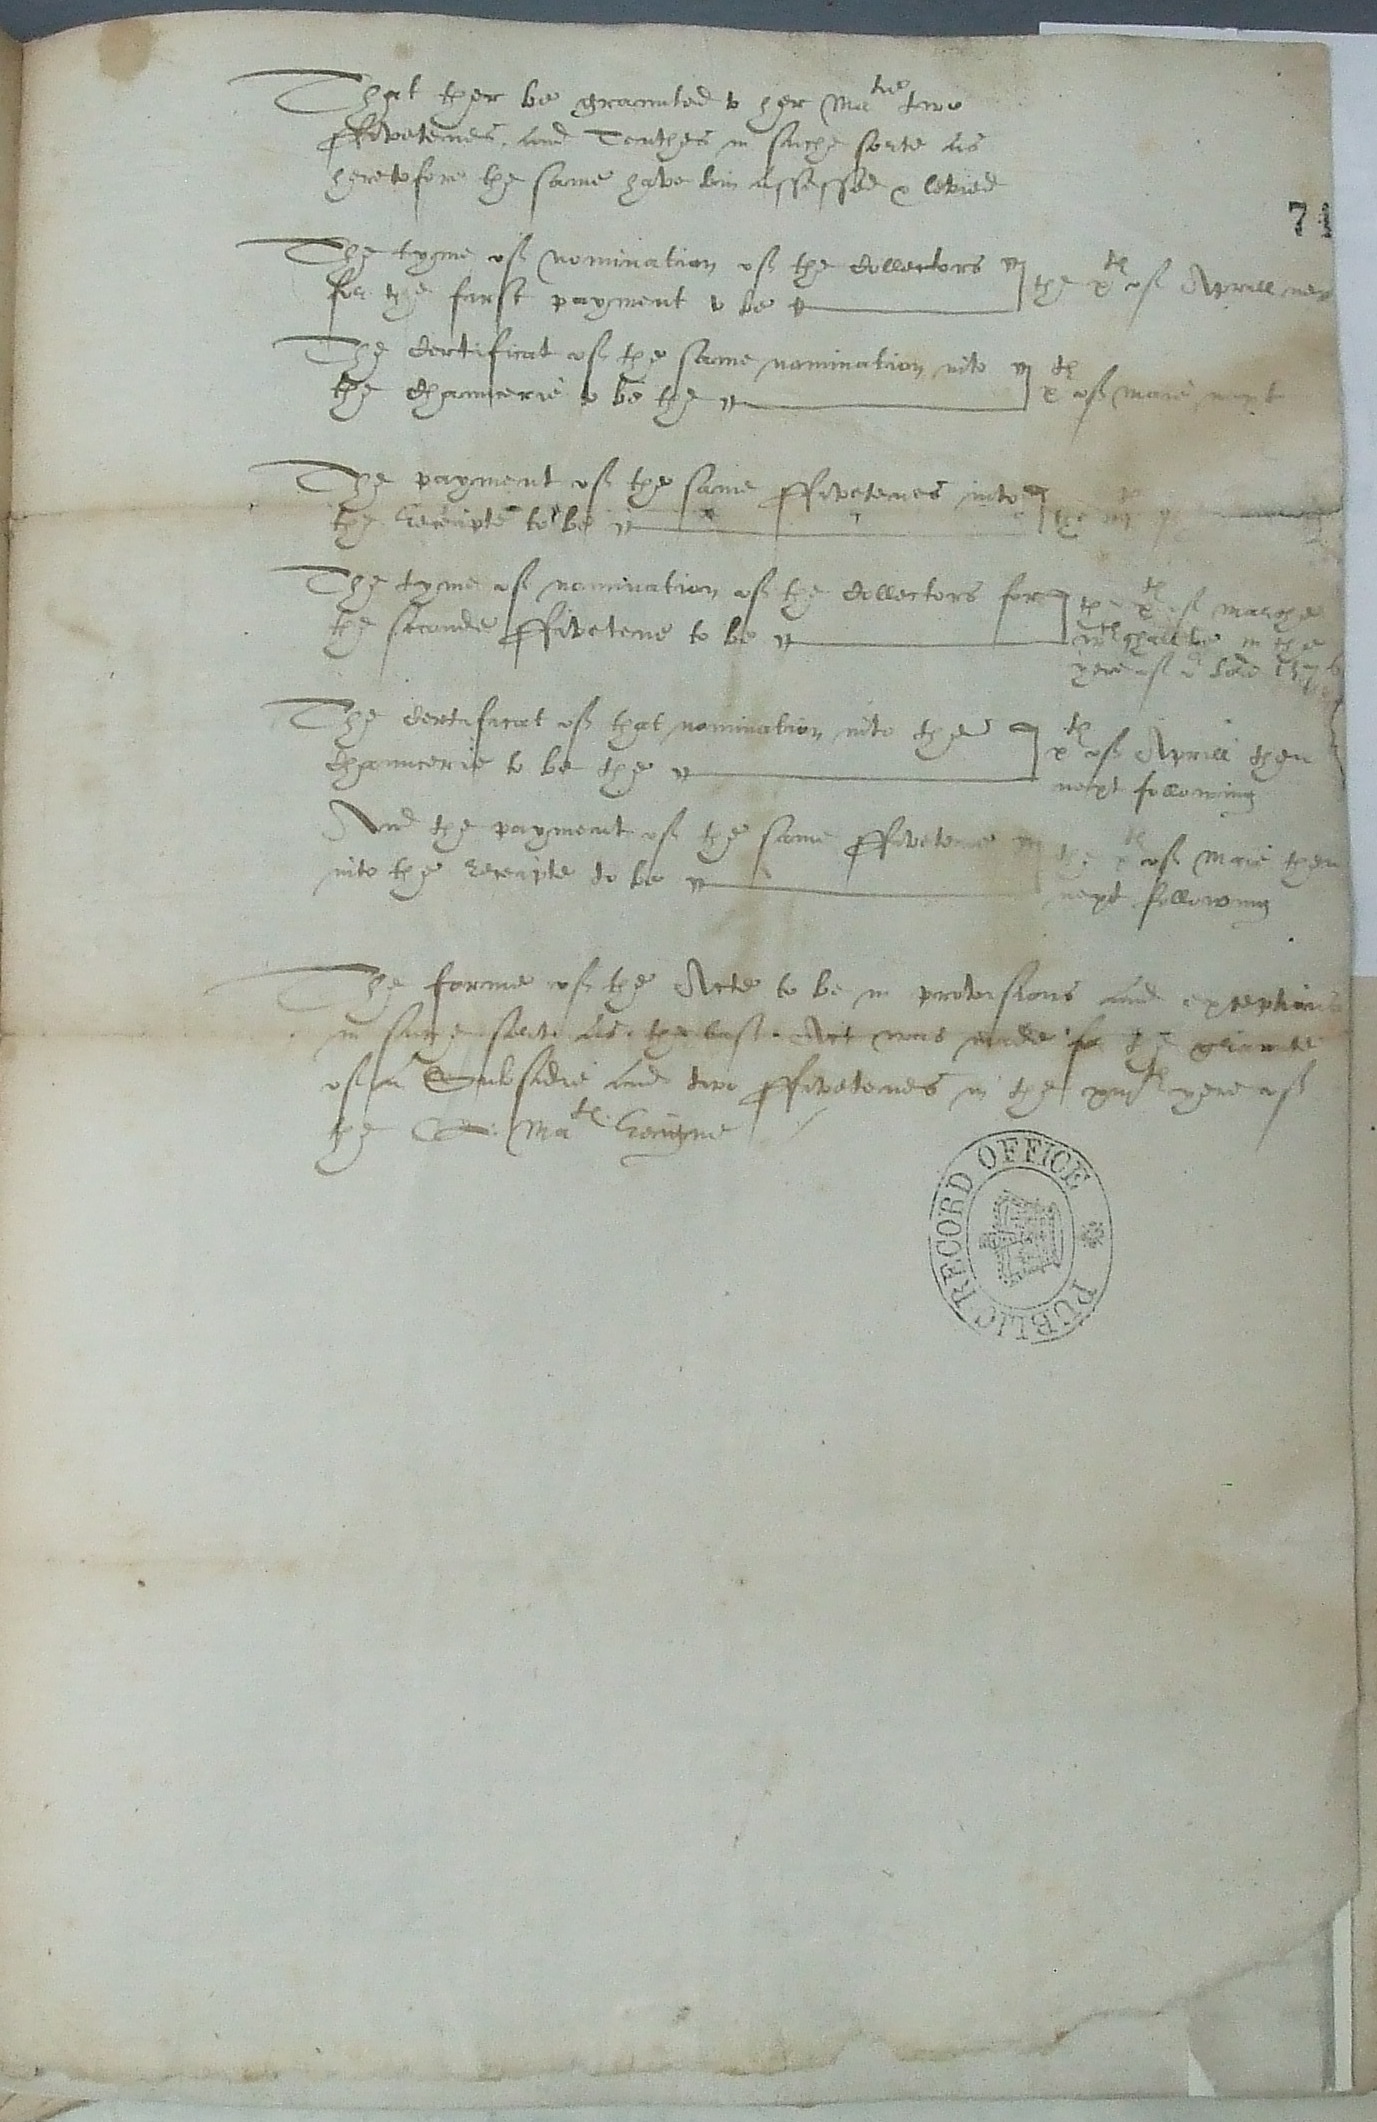 That ther be graunted to her Ma^tie two
ffivetenes and Tenthes in suche sorte as
heretofore the same have bin assessed & levied
71
The tyme of nomination of the Collectors
for the first payment to be
the x^th of Aprill nex
The certificat of the same nomination into
the Chauncerie to be the
x^th of Maie next
The payment of the same ffivetenes into
the Receipte to be
the
The tyme of nomination of the Collectors for
the seconde ffivetene to be
the x^th of Marche
w^ch shalbe in the
yere of o^r Lord 157
The certificat of that nomination into the
Chauncerie to be the
x^th of Aprill then
next following
And the payment of the same ffivetene
into the Receipte to be
the x^th of Maie then
next following
The forme of the Acte to be in provisions and exceptions
in suche sorte as the last Act was made for the graunte
of a Subsidie and two ffivetenes in the xiij^th yere of
the Q. Ma^ts Reigne
PUBLIC RECORD OFFICE